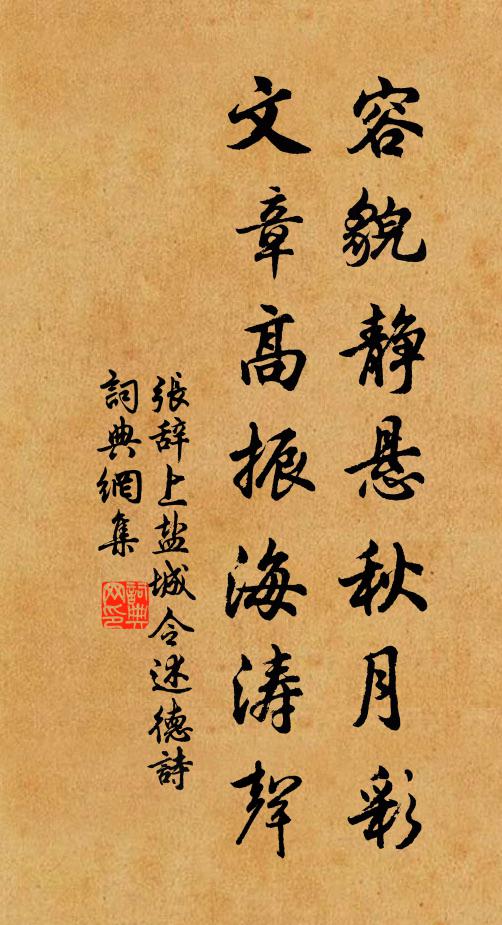 容貌静悬秋月彩
文章高振海涛聲
張辞上盐城令述德詩
詞典網集
詞典網印